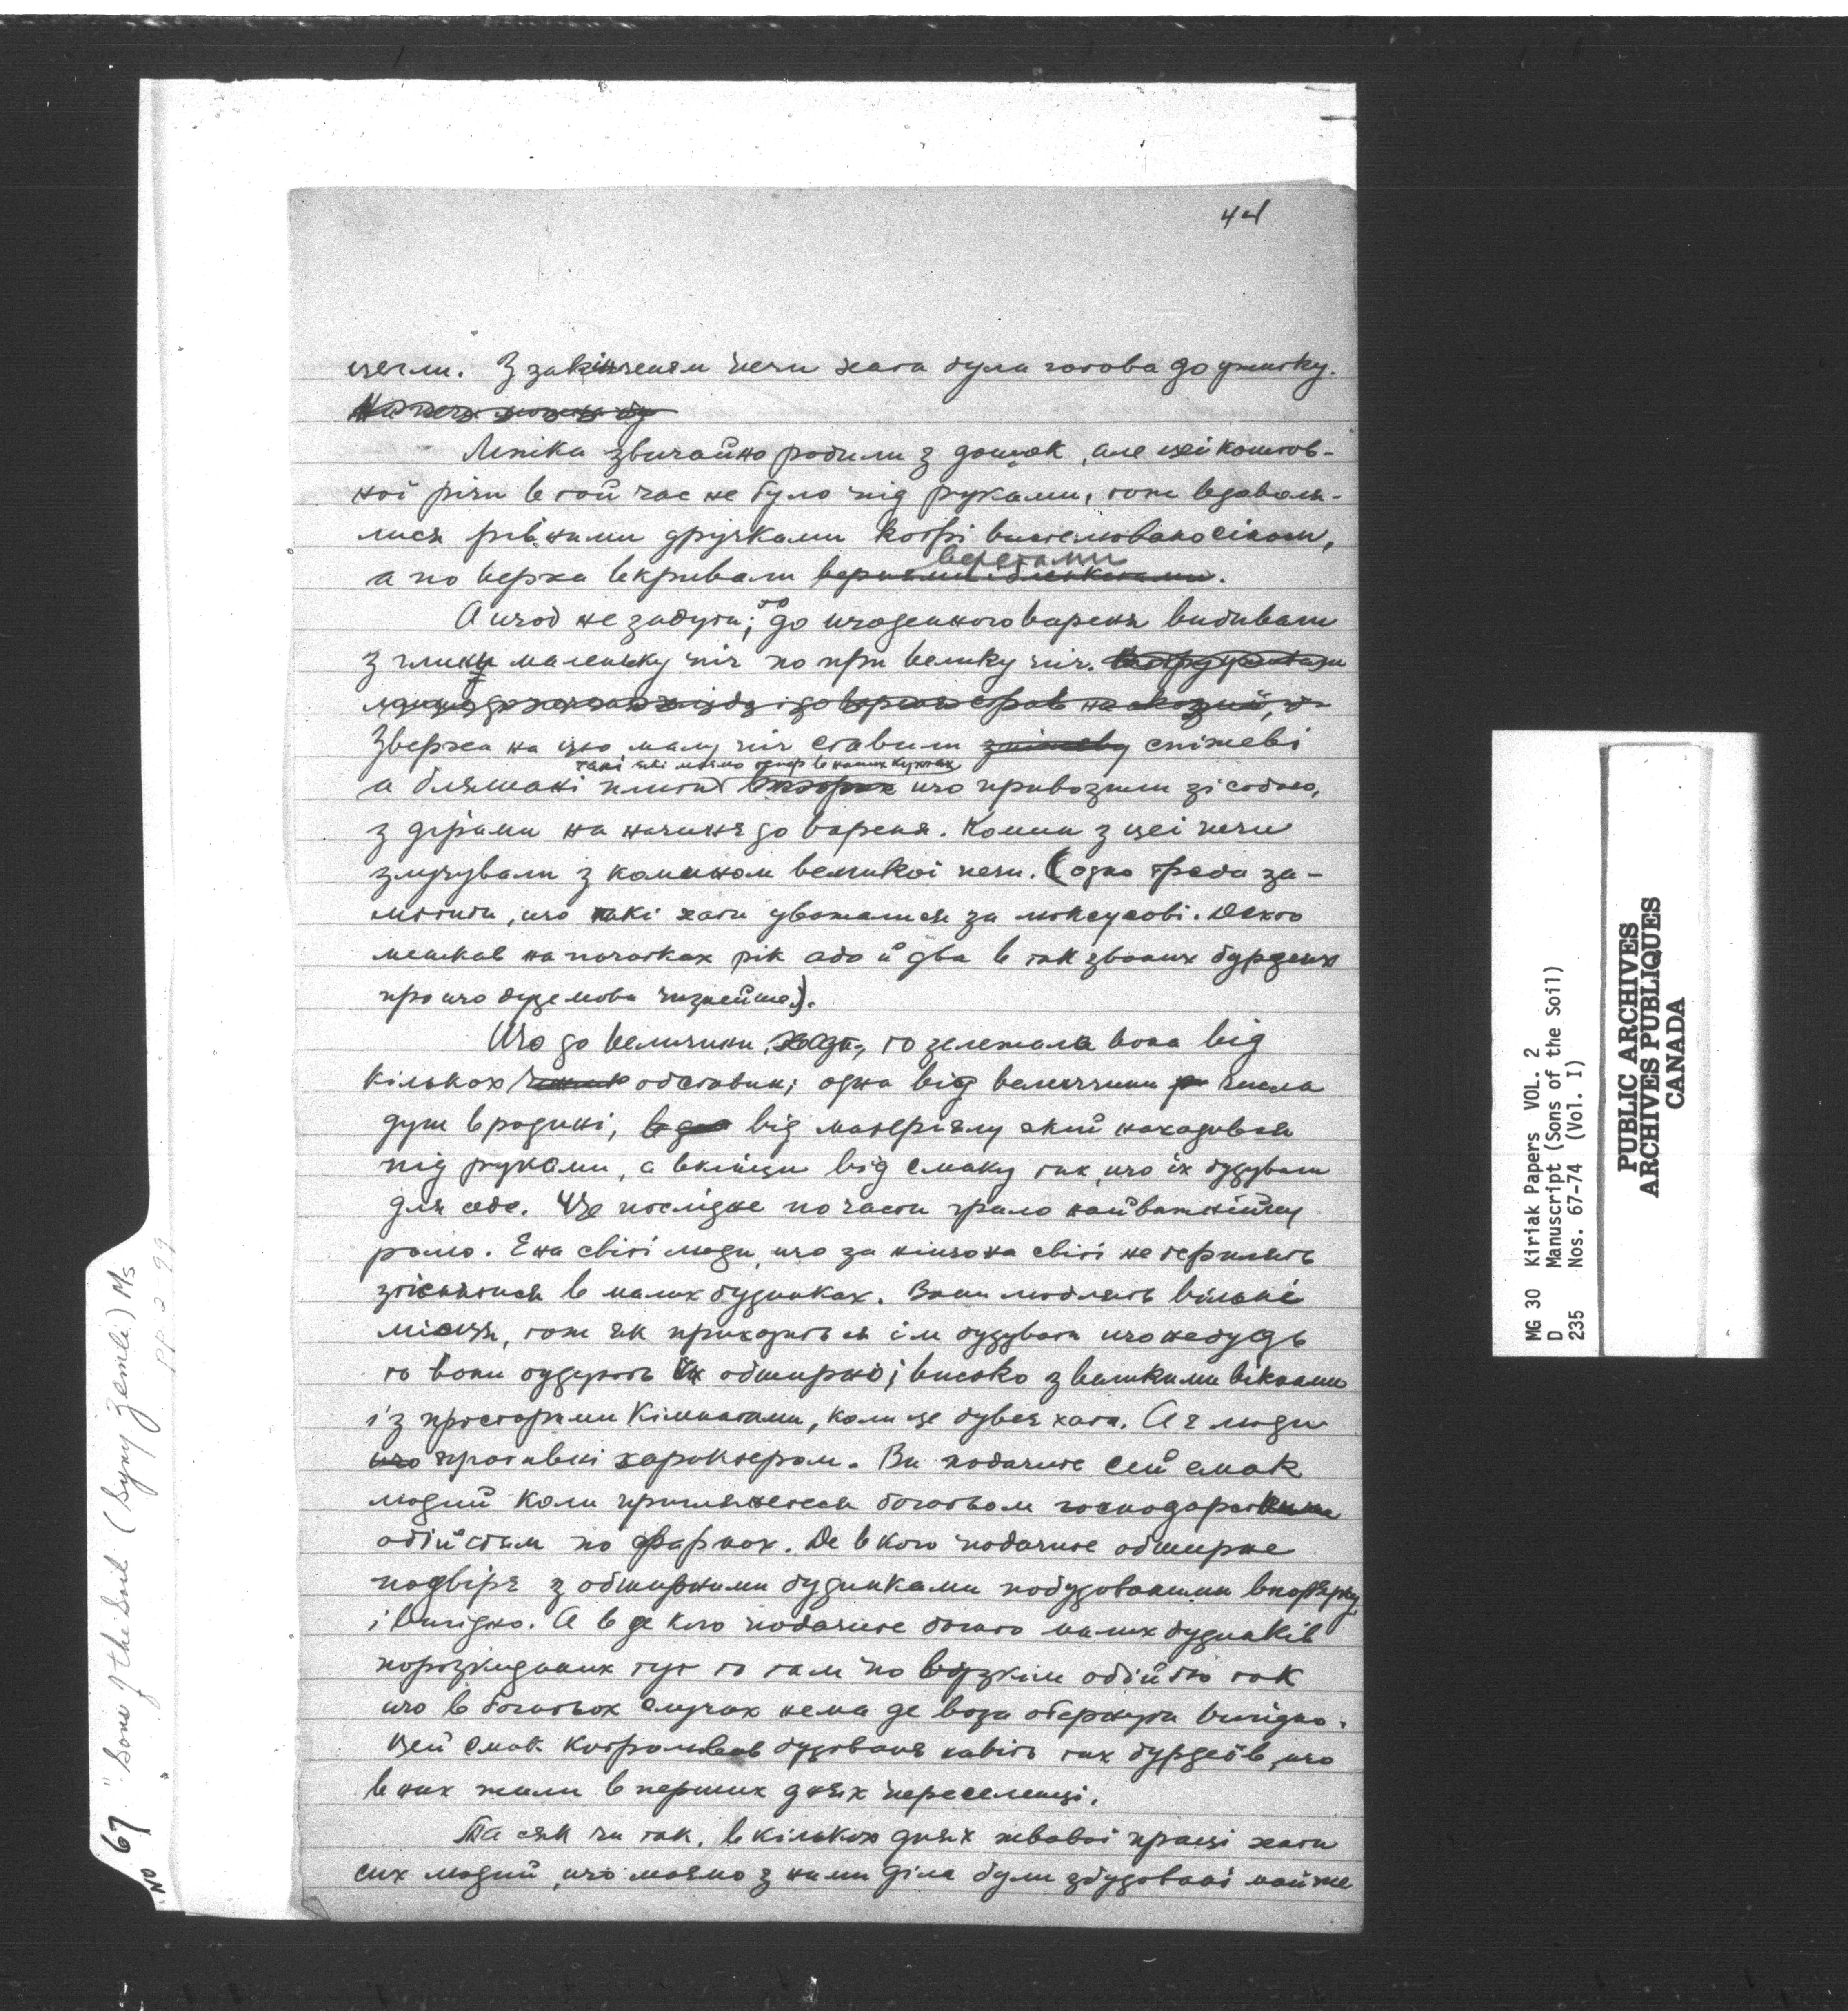 44
цегли. З закінченям печи хата була готова до ужитку.
Ліжка звичайно робили з дошок, але цеї коштов-
ної річи в той час не було під руками, тож вдоволя-
лися рівними дручками котрі вистелювано сіном,
а по верха вкривали веретами
А щоб не забути; то до щоденного вареня вибивали
з глини маленьку піч по при велику піч.
Зверха на цю малу піч ставили спіжеві
такі які маємо тепер в наших кухнях
а бляшані плити що привозили зі собою,
з дірами на начиня до вареня. Комин з цеї печи
злучували з комином великої печи. (одно треба за-
мітити, що такі хати уважалися за люксусові. Декто
мешкав на початках рік або й два в так званих бурдеях
про що буде мова пізнейше).
Що до величини хати, то залежала вона від
кількох обставин; одна від величини числа
душ в родині, від матеріялу який находився
під руками, а вкінци від смаку тих, що їх будували
для себе. Це послідне по части грало найважнійшу
ролю. Є на світі люди, що за ніщо на світі не терплять
тіснитися в малих будинках. Вони люблять вільні
місця, тож як приходиться їм будувати що небудь
то вони будують їх обширно і високо з великими вікнами
і з просторими кімнатами, коли це буває хата. А є люди
противні характером. Ви побачите сей смак
людий коли приглянетеся богатьом господарським
обійстям по фармах. Де в кого побачите обширне
подвірє з обширними будинками побудованими в порядку
і вигідно. А в де кого побачите богато малих будинків
порозкиданих тут то там по вузкім обійстю так
що в богатьох случаях нема де воза обернути вигідно.
Цей смак контролював будованя навіть тих бурдеїв, що
в них жили в перших днях переселенці.
Та сяк чи так, в кількох днях живавої праці хати
сих людий, що маємо з ними діла були збудовані майже
No 67 "Sons of the Soil (Syny Zemli) Ms
PP 2 99
MG 30 Kiriak Papers VOL. 2
D Manuscript (Sons of the Soil)
235 Nos. 67-74 (Vol. I)
PUBLIC ARCHIVES
ARCHIVES PUBLIQUES
CANADA